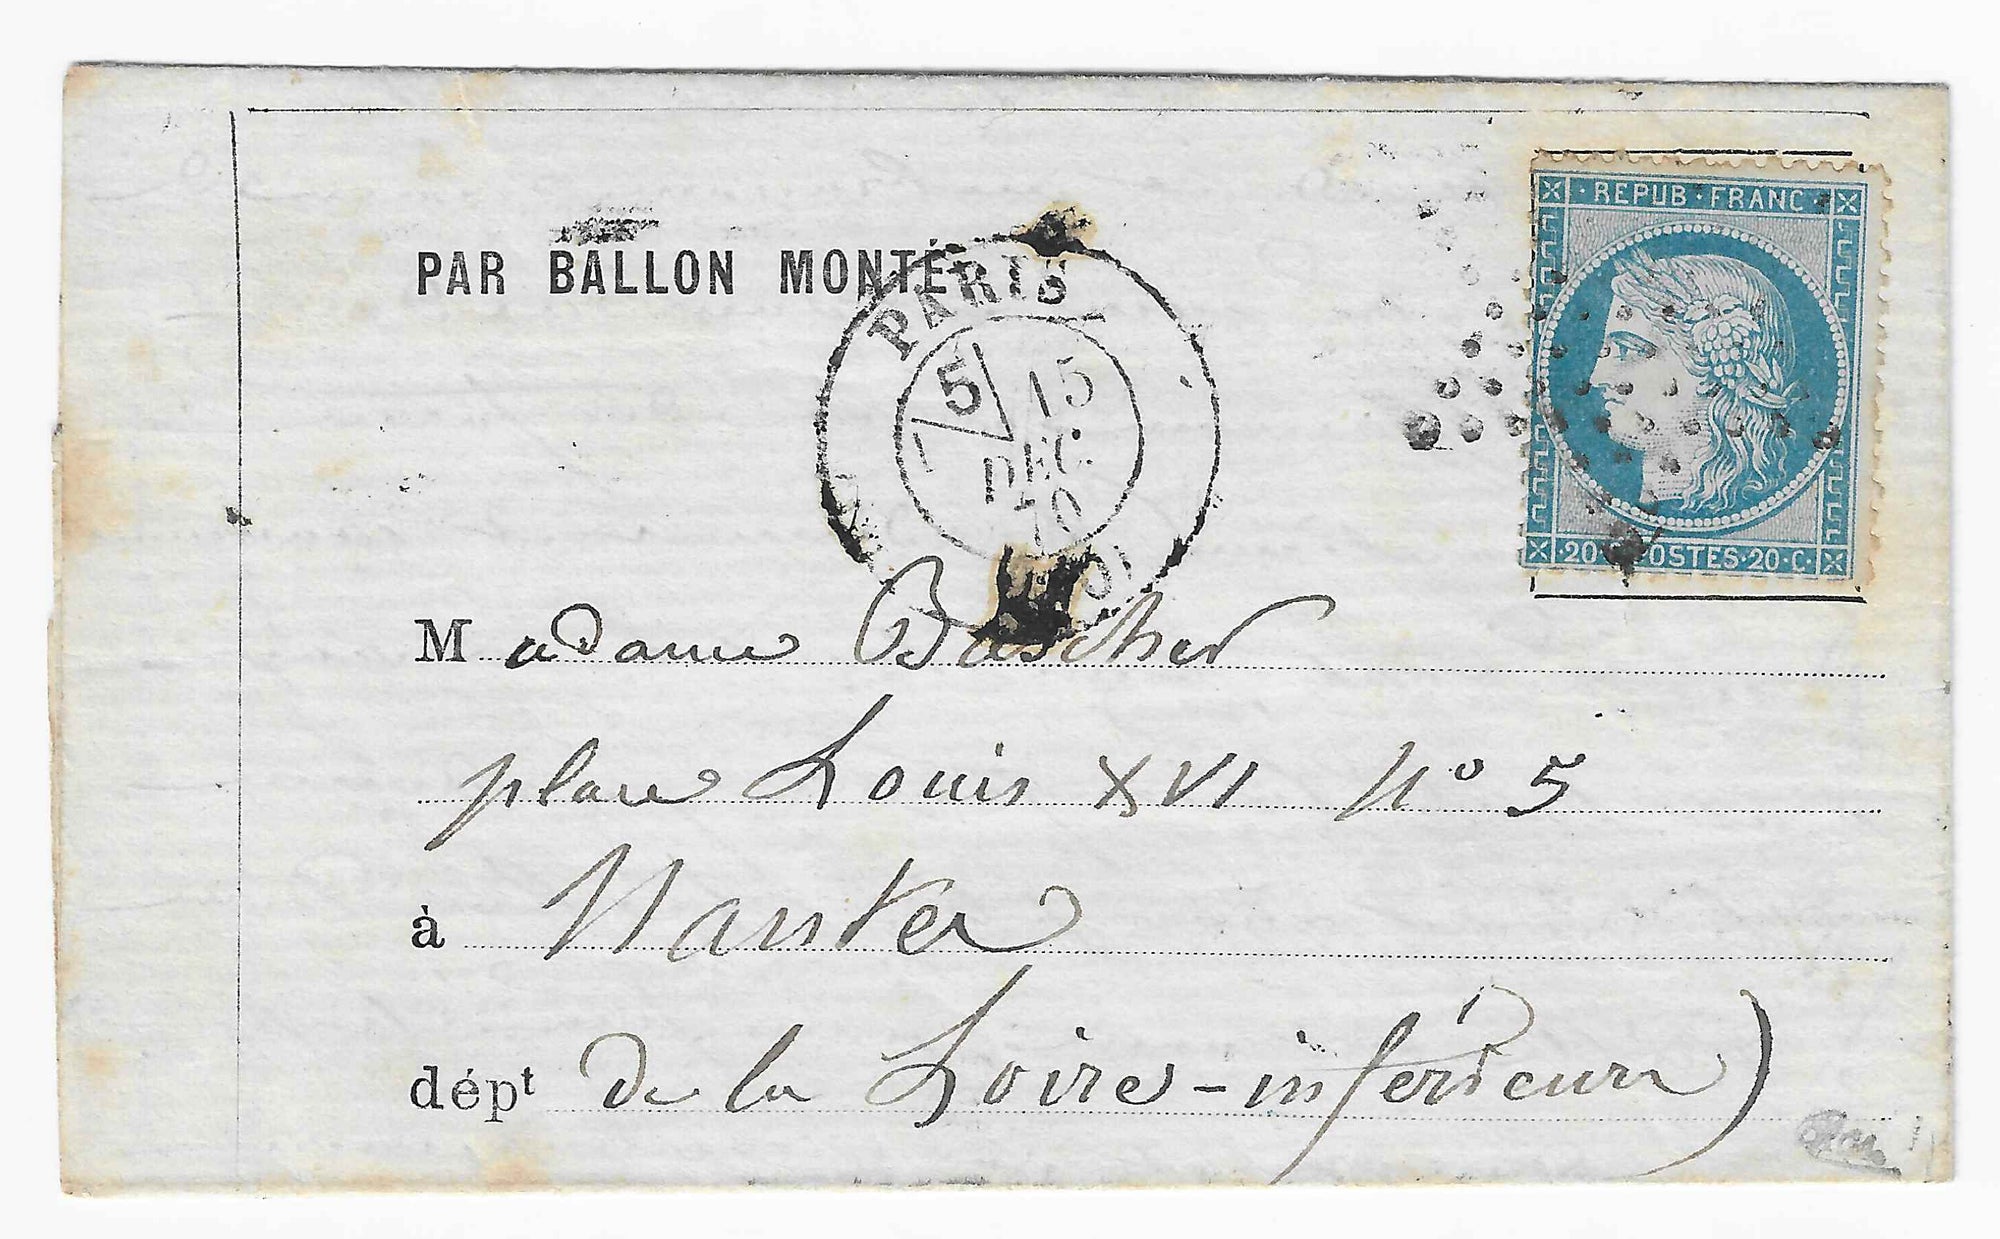 REPUB · FRANC
PAR BALLON MONTÉ
PARIS
5 15
1 DEC.
70
20 C. POSTES · 20 · C.
Madame Bascher
place Louis XVI N° 5
à Nantes
dépt de la Loire-inférieure)